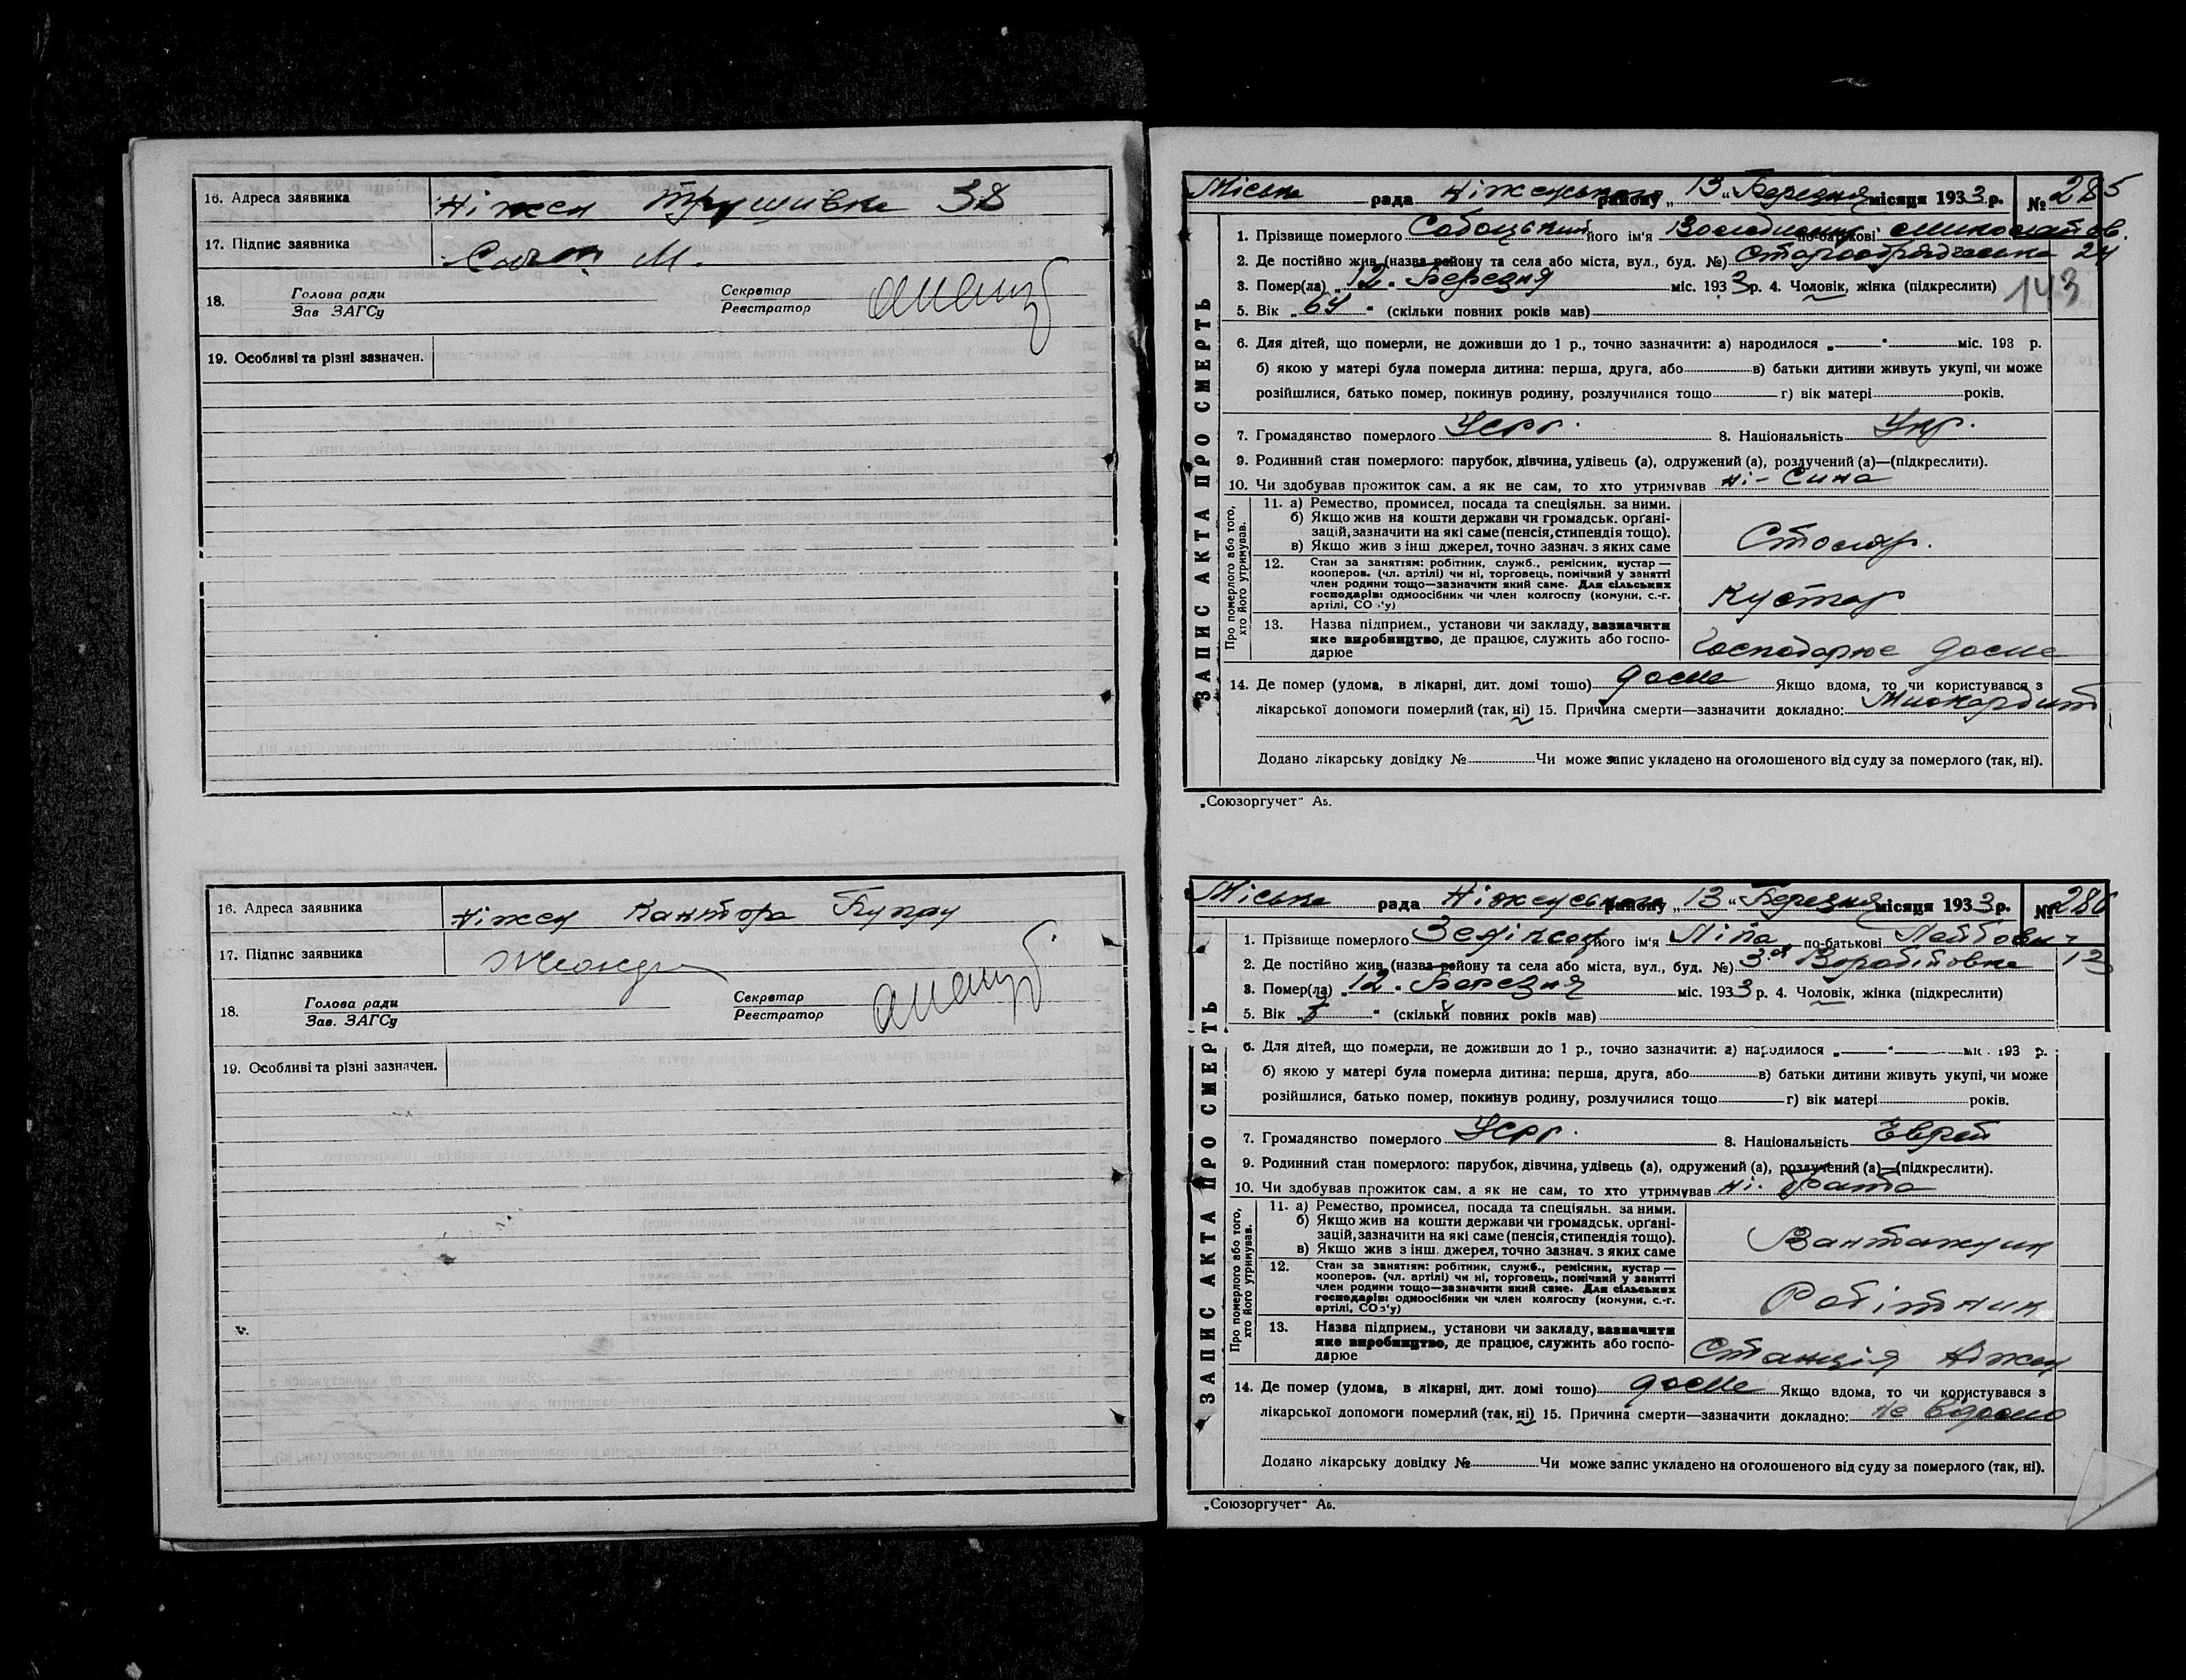 16. Адреса заявника Ніжен Трушивка 38
17. Підпис заявника М.
18. Голова ради Секретар
Зав ЗАГСу Реєстратор
19. Особливі та різні зазначен.
16. Адреса заявника Ніжен Кантора
17. Підпис заявника
18. Голова ради Секретар
Зав. ЗАГСу Реєстратор
19. Особливі та різні зазначен.
Міська рада Ніженського району „ 13 “ Березня місяця 1933 р. № 285
ЗАПИС АКТА ПРО СМЕРТЬ
1. Прізвище померлого Собоцький його ім'я Володимир по-батькові Миколайов.
2. Де постійно жив (назва району та села або міста, вул., буд. №) Старообрядчеська 24
3. Помер(ла) „ 12 “ Березня міс. 1933 р. 4. Чоловік, жінка (підкреслити) 143
5. Вік „ 64 “ (скільки повних років мав)
6. Для дітей, що померли, не доживши до 1 р., точно зазначити: а) народилося „ — “ — міс. 193 р.
б) якою у матері була померла дитина: перша, друга, або в) батьки дитини живуть укупі, чи може
розійшлися, батько помер, покинув родину, розлучилися тощо г) вік матері років.
7. Громадянство померлого Усрр. 8. Національність Укр.
9. Родинний стан померлого: парубок, дівчина, удівець (а), одружений (а), розлучений (а)—(підкреслити).
10. Чи здобував прожиток сам, а як не сам, то хто утримував ні - Сина
Про померлого або того, хто його утримував.
11. а) Ремество, промисел, посада та спеціяльн. за ними.
б) Якщо жив на кошти держави чи громадськ. орґані-
зацій, зазначити на які саме (пенсія, стипендія тощо).
в) Якщо жив з інш джерел, точно зазнач. з яких саме
Столяр.
12. Стан за заняттям: робітник, служб., ремісник, кустар —
кооперов. (чл. артілі) чи ні, торговець, помічний у занятті
член родини тощо—зазначити який саме. Для сільських
господарів: одноосібник чи член колгоспу (комуни, с.-г.
артілі, СОЗ'у)
Кустар
13. Назва підприєм., установи чи закладу, зазначити
яке виробництво, де працює, служить або госпо-
дарює
Господарює дома
14. Де помер (удома, в лікарні, дит. домі тощо) дома Якщо вдома, то чи користувався з
лікарської допомоги померлий (так, ні) 15. Причина смерти—зазначити докладно: Миокардит
Додано лікарську довідку № Чи може запис укладено на оголошеного від суду за померлого (так, ні).
„Союзоргучет“ Аб.
Міська рада Ніженського району „ 13 “ Березня місяця 1933 р. № 286
ЗАПИС АКТА ПРО СМЕРТЬ
1. Прізвище померлого його ім'я Ліпа по-батькові Лейбович
2. Де постійно жив (назва району та села або міста, вул., буд. №) 3я 13
3. Помер(ла) „ 12 “ Березня міс. 1933 р. 4. Чоловік, жінка (підкреслити)
5. Вік „ “ (скільки повних років мав)
6. Для дітей, що померли, не доживши до 1 р., точно зазначити: а) народилося „ — “ — міс. 193 р.
б) якою у матері була померла дитина: перша, друга, або в) батьки дитини живуть укупі, чи може
розійшлися, батько помер, покинув родину, розлучилися тощо г) вік матері років.
7. Громадянство померлого Усрр. 8. Національність Еврей
9. Родинний стан померлого: парубок, дівчина, удівець (а), одружений (а), розлучений (а)—(підкреслити).
10. Чи здобував прожиток сам, а як не сам, то хто утримував ні. брата
Про померлого або того, хто його утримував.
11. а) Ремество, промисел, посада та спеціяльн. за ними.
б) Якщо жив на кошти держави чи громадськ. орґані-
зацій, зазначити на які саме (пенсія, стипендія тощо).
в) Якщо жив з інш. джерел, точно зазнач. з яких саме
Вантажник
12. Стан за заняттям: робітник, служб., ремісник, кустар —
кооперов. (чл. артілі) чи ні, торговець, помічний у занятті
член родини тощо—зазначити який саме. Для сільських
господарів: одноосібник чи член колгоспу (комуни, с.-г.
артілі, СОЗ'у)
Робітник
13. Назва підприєм., установи чи закладу, зазначити
яке виробництво, де працює, служить або госпо-
дарює
Станція Ніжен
14. Де помер (удома, в лікарні, дит. домі тощо) дома Якщо вдома, то чи користувався з
лікарської допомоги померлий (так, ні) 15. Причина смерти—зазначити докладно: не відомо
Додано лікарську довідку № Чи може запис укладено на оголошеного від суду за померлого (так, ні).
„Союзоргучет“ Аб.